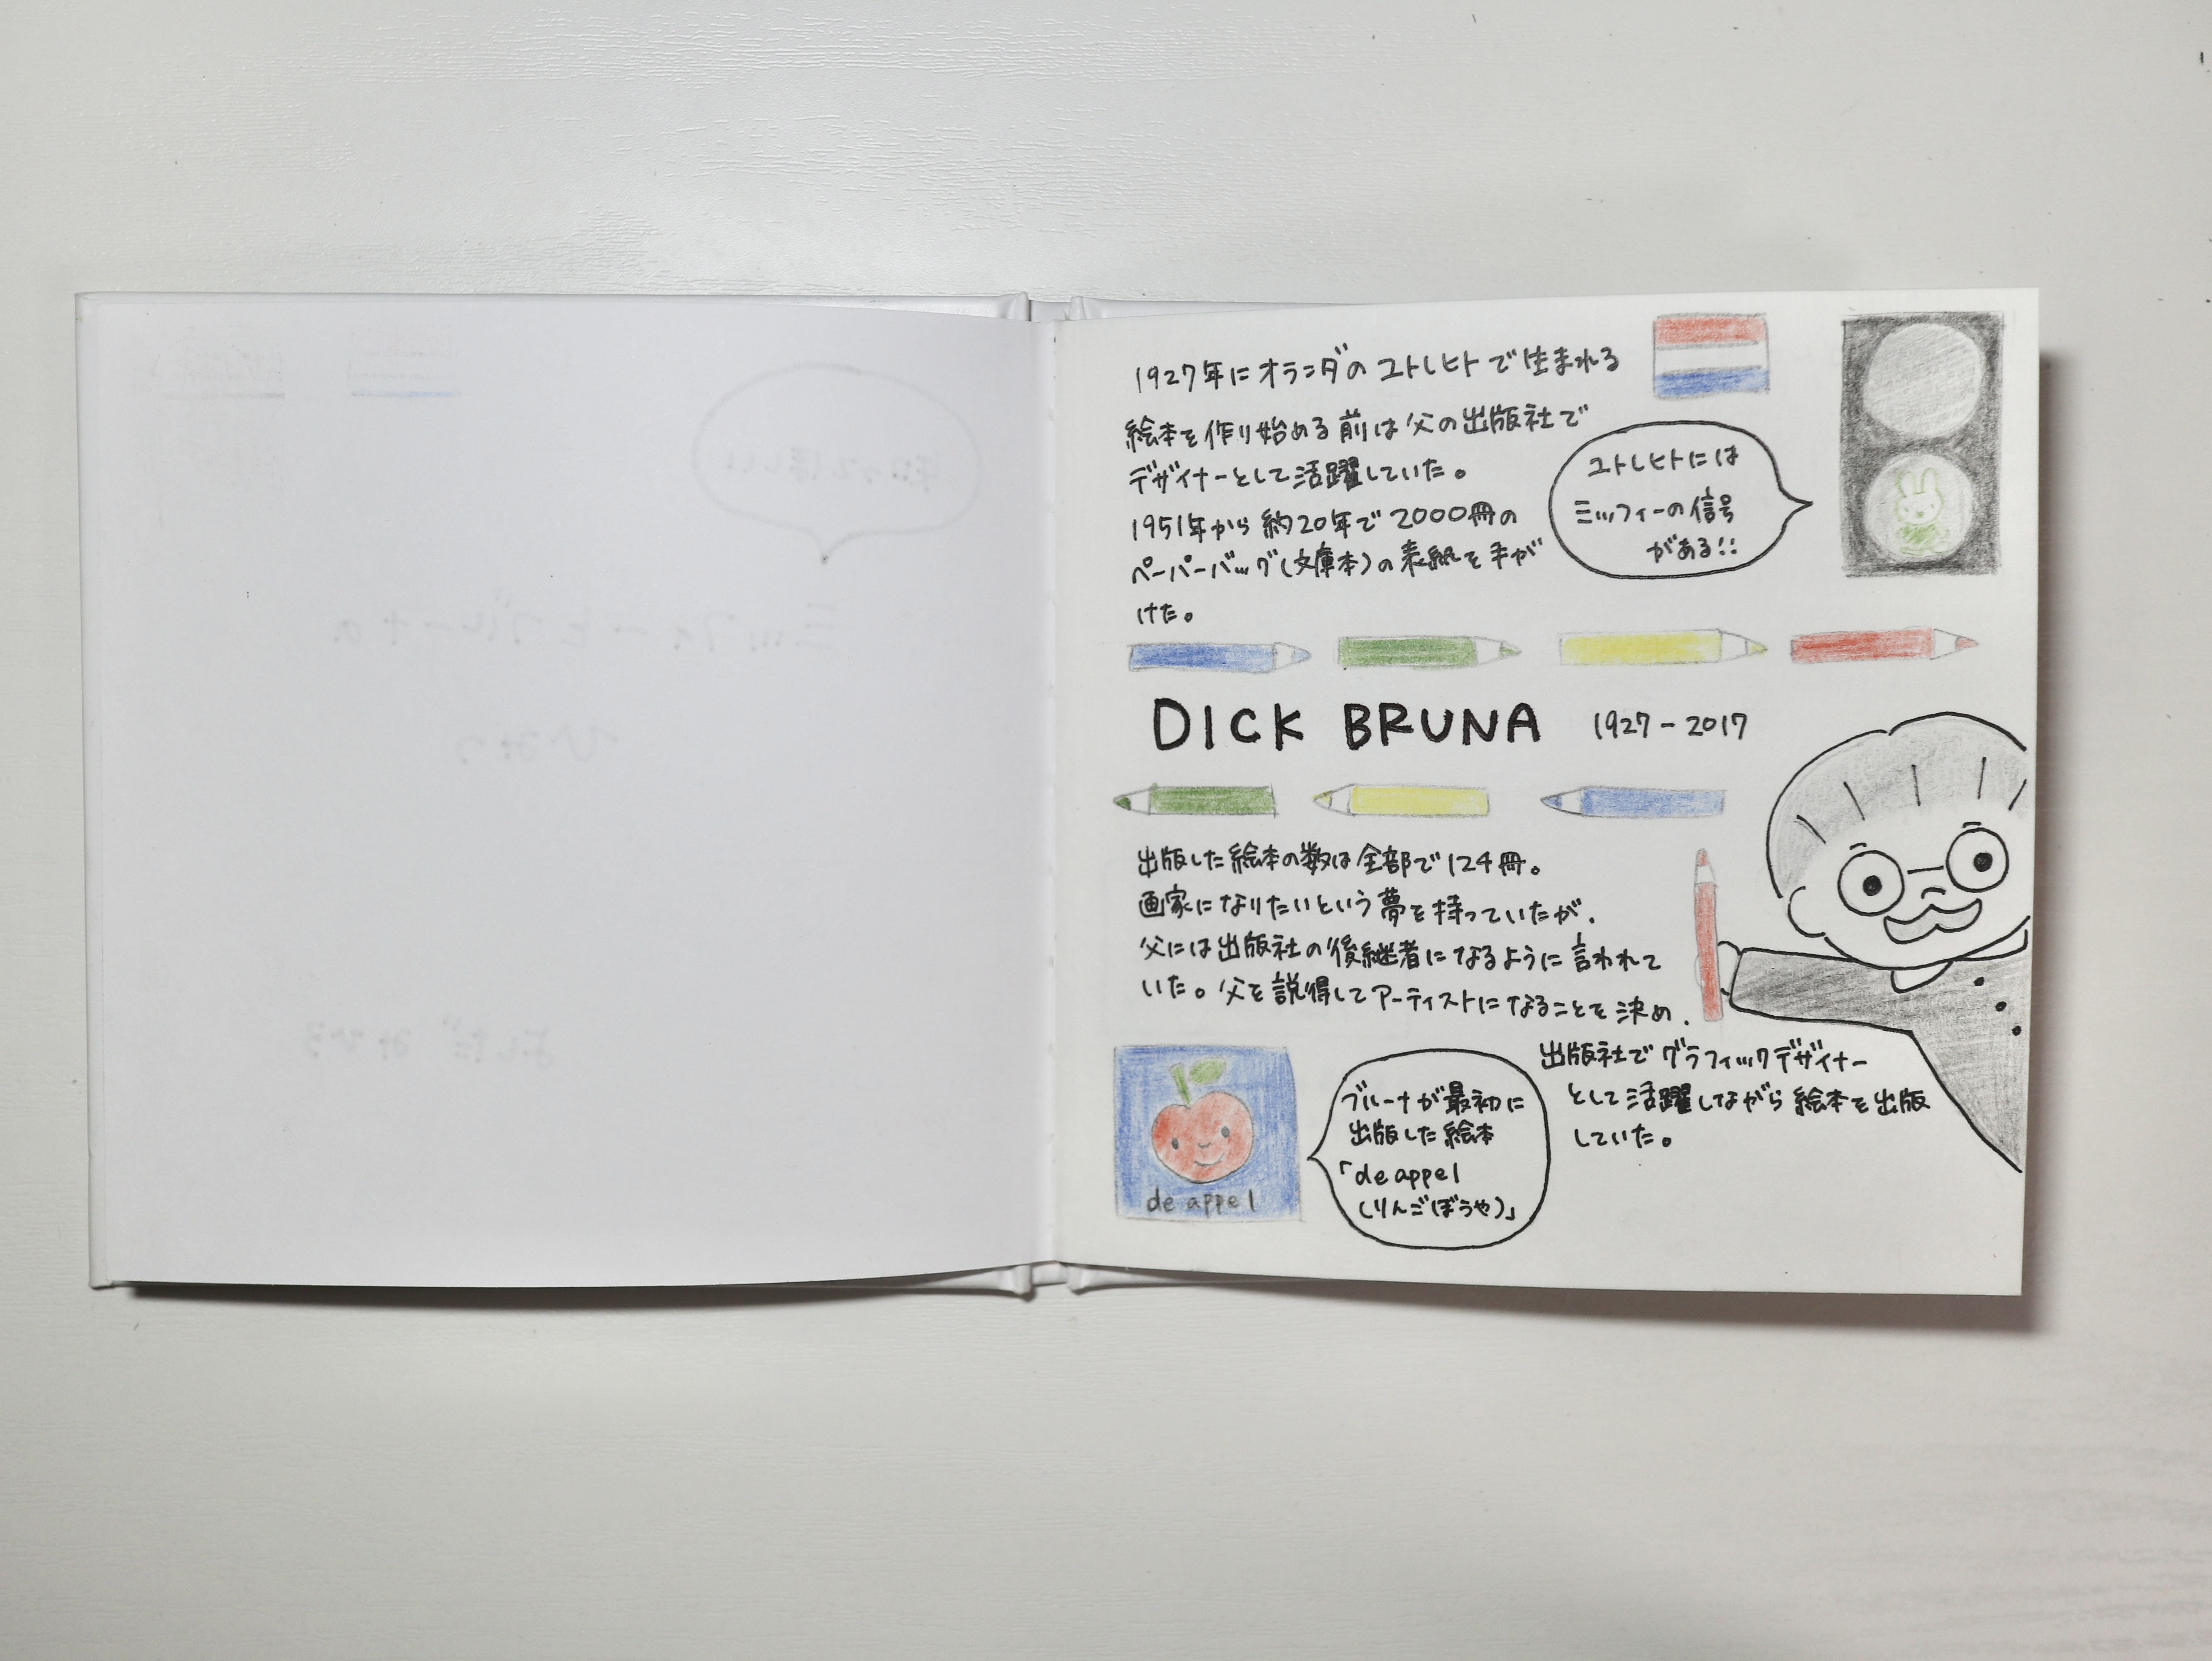 1927年にオランダのユトレヒトで生まれる
絵本を作り始める前は父の出版社で
デザイナーとして活躍していた。
1951年から約20年で2000冊の
ペーパーバッグ(文庫本)の表紙を手が
けた。
ユトレヒトには
ミッフィーの信号
がある!!
DICK BRUNA 1927-2017
出版した絵本の数は全部で124冊。
画家になりたいという夢を持っていたが、
父には出版社の後継者になるように言われて
いた。父を説得してアーティストになることを決め、
出版社でグラフィックデザイナー
として活躍しながら絵本を出版
していた。
de appel
ブルーナが最初に
出版した絵本
「de appel
(りんごぼうや)」